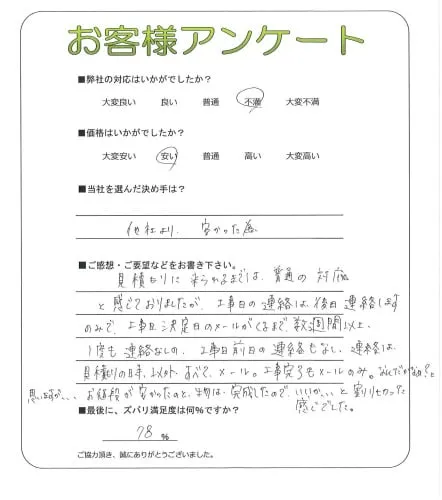 お客様アンケート
■弊社の対応はいかがでしたか？
大変良い 良い 普通 不満 大変不満
■価格はいかがでしたか？
大変安い 安い 普通 高い 大変高い
■当社を選んだ決め手は？
他社より、安かった為
■ご感想・ご要望などをお書き下さい。
見積もりに来られるまでは、普通の対応
と感じておりましたが、工事日の連絡は、後日連絡します
のみで、工事日決定日のメールがくるまで、数週間以上、
1度も連絡なしの、工事日前日の連絡もなし、連絡は、
見積りの日時、以外すべて、メール。工事完了もメールのみ。なんだかなぁ?と
思いますが、、、お値段が安かったのと、物は、完成したので、いいかぁ、と割り切った
感じでした。
■最後に、ズバリ満足度は何％ですか？
78 %
ご協力頂き、誠にありがとうございました。